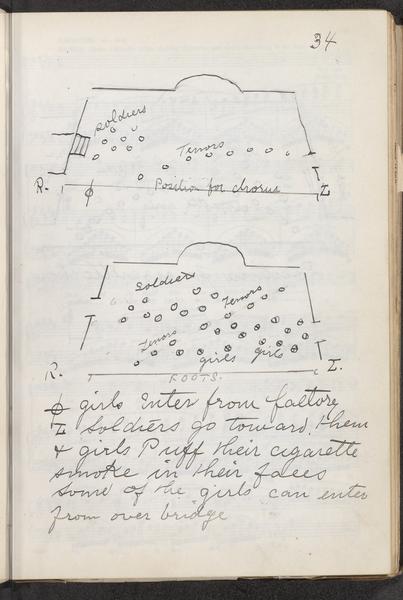 34
Soldiers
Tenors
R.
ϕ
Position for chorus
L
Soldiers
Tenors
Tenors
girls
girls
R.
L.
FOOTS.
ϕ girls Enter from factory
Soldiers go toward them
& girls Puff their cigarette
smoke in their faces
some of the girls can enter
from over bridge